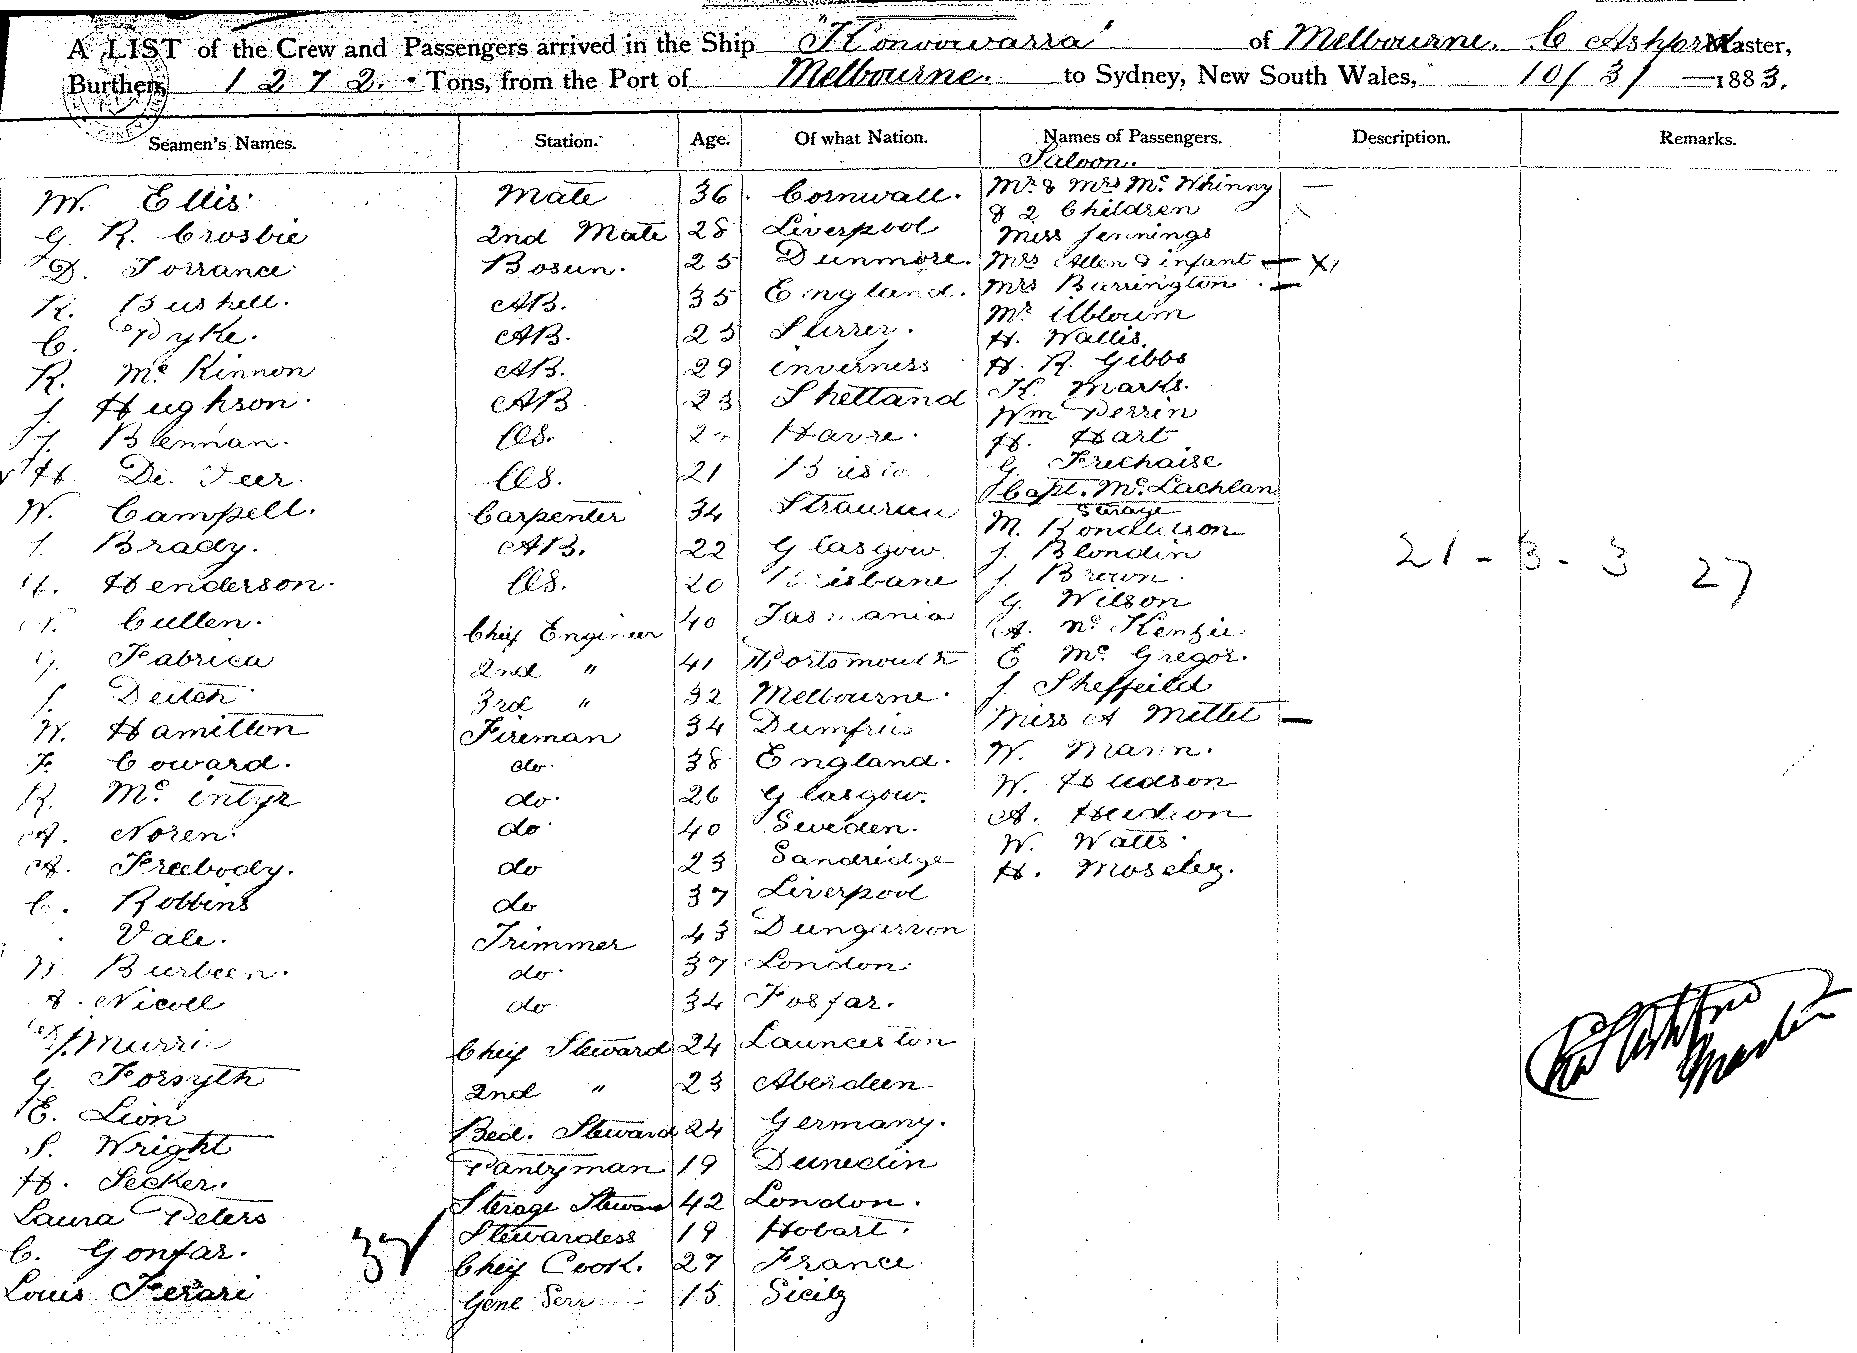 A LIST of the Crew and Passengers arrived in the Ship "Konoowarra" of Melbourne. C Ashford Master,
Burthen 1272. Tons, from the Port of Melbourne. to Sydney, New South Wales, 10/3/ 1883.
Seamen's Names. Station. Age. Of what Nation. Names of Passengers. Description. Remarks.
Saloon.
W. Ellis Mate 36 Cornwall. Mr & Mrs Mc Whinny —
& 2 Children
G. R. Crosbie 2nd Mate 28 Liverpool Miss Jennings
D. Torrance Bosun. 25 Dunmore. Mrs Allen & infant — X
R. Bushell. AB. 35 England. Mrs Burrington —
Mr Ilbloum
C. Pyke. AB. 25 Surrey. H. Wallis.
R. Mc Kinnon AB. 29 inverness H. R. Gibbs
J. Hughson. AB 23 Shetland K. Marks.
Wm Perrin
J. Brennan. OS. Havre. H. Hart
H. De Veer. OS. 21 G. Frechaise
Capt. Mc Lachlan
W. Campell. Carpenter 34 Steerage
M.
J. Brady. AB. 22 Glasgow. J. Blondin
H. Henderson. OS. 20 Brisbane J. Brown. 21 - 3 - 3 27
Cullen. Chief Engineer 40 Tasmania G. Wilson
A. Mc Kenzie
G. Fabrica 2nd " 41 Portsmouth E Mc Gregor.
J. Deitch 3rd " 32 Melbourne. J. Sheffeild
W. Hamilton Fireman 34 Dumfris Miss A Mittet —
F Coward. do 38 England. W. Mann.
R. Mc intyr do 26 Glasgow. W. Hudson
A. Noren. do 40 Sweden. A. Hudson
A. Freebody. do 23 Sandridge W. Watts
C. Robbins do 37 Liverpool H. Moseley.
Vale. Trimmer 43 Dungarvon
W. Burbeen. do 37 London
A. Nicoll do 34 Fosfar.
J. Murri Chief Steward 24 Launceston
G. Forsyth 2nd " 23 Aberdeen
E. Lion Bed. Steward 24 Germany.
S. Wright Pantryman 19 Dunedin
H. Secker. Sterage Steward 42 London.
Laura Peters Stewardess 19 Hobart.
37
C. Gontar. Chief Cook. 27 France
Louis Ferari Genl Serv 15 Sicily
Master